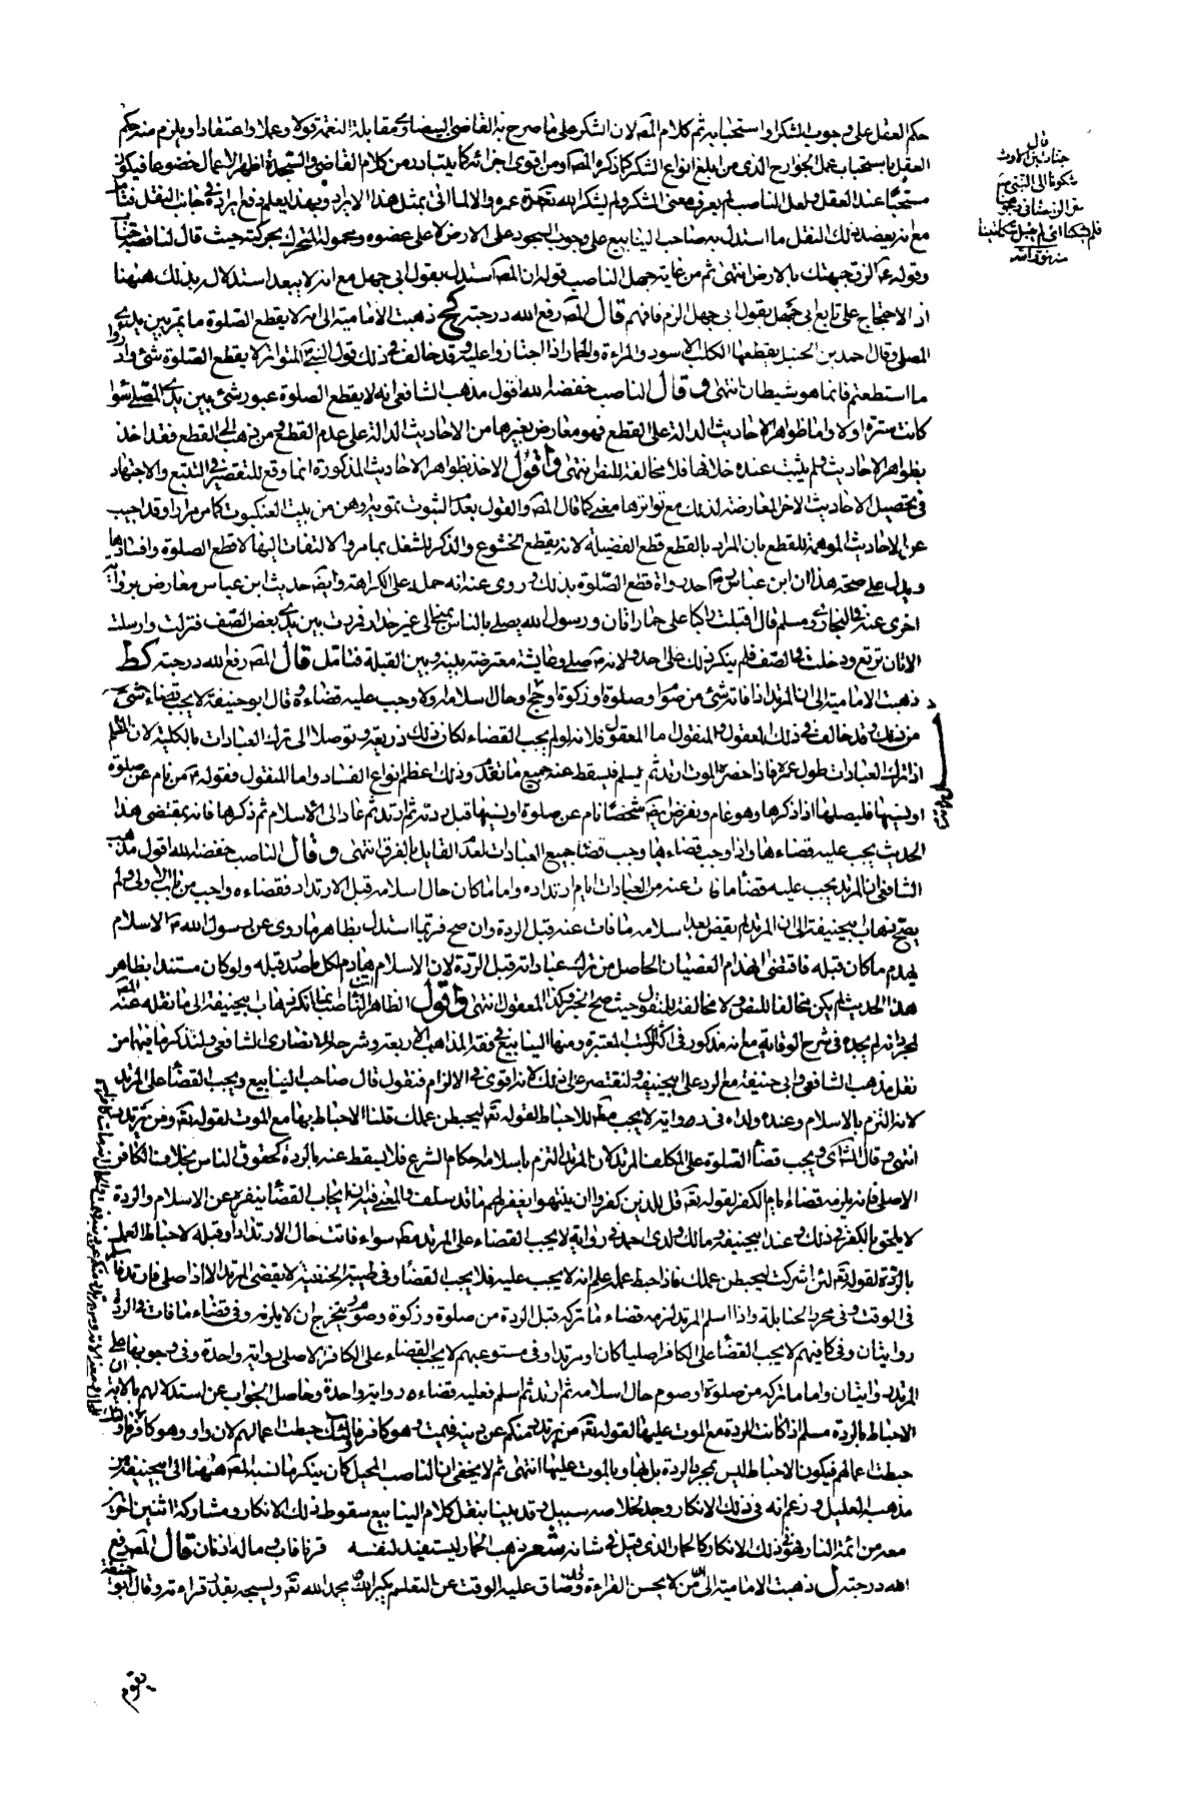 حكم العقل على وجوب الشكر او استحبابه ثم كلام المص لان الشكر على ما صرح به القاضى البيضاوى مقابلة النعمة قولا وعملا واعتقادا ويلزم منه حكم
العقل باستحباب عمل الجوارح الذى من ابلغ انواع الشكر كما ذكره المص او من اقوى اجزائه كما يتبادر من كلام القاضى والسجدة اظهر الاعمال خضوعا فيكون
مستحبا عند العقل ولعل الناصب لم يعرف معنى الشكر ولم يشكر الله تعالى مدة عمره والا لما اتى بمثل هذا الايراد وبهذا يعلم دفع ايراده فى جانب النقل فتامل
مع انه يعضد ذلك النقل ما استدل به صاحب الينابيع على وجوب السجود على الارض لا على عضوه ومحموله المتحرك بحركته حيث قال لنا قضية خباب
وقوله الزق جبهتك بالارض انتهى ثم من غاية جهل الناصب قوله ان المص استدل بقول ابى جهل مع انه لا يبعد استدلاله بذلك هنهنا
اذ الاحتجاج على تابع ابى جهل بقول ابى جهل الزم فافهم قال المص رفع الله درجته كح ذهبت الامامية الى انه لا يقطع الصلوة ما يمر بين يدى
المصلى وقال احمد بن الحنبل يقطعها الكلب الاسود والمراءة والحمار اذا اجتازوا عليه وقد خالف فى ذلك قول النبى المتواتر لا يقطع الصلوة شئ وادرؤا
ما استطعتم فانما هو شيطان انتهى وقال الناصب خفضه الله اقول مذهب الشافعى انه لا يقطع الصلوة عبور شئ بين يدى المصلى سواء
كانت سترة او لا واما ظواهر الاحاديث الدالة على القطع فهو معارض بغيرها من الاحاديث الدالة على عدم القطع ومن ذهب الى القطع فقد اخذ
بظواهر الاحاديث ولم يثبت عنده خلافها فلا مخالفة للنص انتهى واقول الاخذ بظواهر الاحاديث المذكورة انما وقع للتقصير فى التتبع والاجتهاد
فى تحصيل الاحاديث الاخر المعارضة لذلك مع تواترها معنى كما قال المص والقول بعدم الثبوت تمويه وهن من بيت العنكبوت كما مر مرارا وقد اجيب
عن الاحاديث الموهمة للقطع بان المراد بالقطع قطع الفضيلة لانه يقطع الخشوع والذكر للشغل بما مر والالتفات اليها لا قطع الصلوة وافسادها
ويدل على صحة هذا ان ابن عباس احد رواة قطع الصلوة بذلك روى عنه انه حمله على الكراهة وايضا حديث ابن عباس معارض برواية
اخرى عنه فى البخارى ومسلم قال اقبلت راكبا على حمار اتان ورسول الله يصلى بالناس بمنى الى غير جدار فمررت بين يدى بعض الصف فنزلت وارسلت
الاتان ترتع ودخلت فى الصف فلم ينكر ذلك على احد ولانه صلى وعايشة معترضة بينه وبين القبلة فتامل قال المص رفع الله درجته كط
ذهبت الامامية الى ان المرتد اذا فاته شئ من صوم او صلوة او زكوة او حج او حال اسلامه ولا وجب عليه قضاءه وقال ابو حنيفة لا يجب قضاء شئ
من ذلك وقد خالف فى ذلك المعقول والمنقول اما المعقول فلانه لو لم يجب القضاء لكان ذلك ذريعة وتوصلا الى ترك العبادات بالكلية لان المسلم
اذا ترك العبادات طول عمره فاذا حضره الموت ارتد ثم يسلم فيسقط عنه جميع ما تقدم وذلك اعظم انواع الفساد واما المنقول فقوله من نام عن صلوة
او نسيها فليصلها اذا ذكرها وهو عام ونفرض شخصا نام عن صلوة او نسيها قبل ردته ثم ارتد ثم عاد الى الاسلام ثم ذكرها فانه بمقتضى هذا
الحديث يجب عليه قضاءها واذا وجب قضاءها وجب قضا جميع العبادات لعدم القايل بالفرق انتهى وقال الناصب خفضه الله اقول مذهب
الشافعى ان المرتد يجب عليه قضا ما فات عنه من العبادات ايام ارتداده واما ما كان حال اسلامه قبل الارتداد فقضاءه واجب من باب الاولى ولم
يصح ذهاب ابيحنيفة الى ان المرتد لم يقض بعد اسلامه ما فات عنه قبل الردة وان صح فربما استدل بظاهر ما روى عن رسول الله الاسلام
يهدم ما كان قبله فاقتضى انهدام العصيان الحاصل من تركه عباداته قبل الردة لان الاسلام هادم لكل ما صدر قبله ولو كان مستندا بظاهر
هذا الحديث لم يكن مخالفا للنص ولا مخالفة للمنقول حيث صح الخبر وكذا المعقول انتهى واقول الظاهر ان الناصب انما انكر ذهاب ابيحنيفة الى ما نقله عنه المص
لمجرد انه لم يجده فى شرح الوقاية مع انه مذكور فى اكثر الكتب المعتبرة ومنها الينابيع فى فقه المذاهب الاربعة وشرحه للانصارى الشافعى ولنذكر ما فيهما من
نقل مذهب الشافعى وابى حنيفة مع الرد على ابيحنيفة ولنقتصر على ذلك لانه اقوى فى الالزام فنقول قال صاحب الينابيع ويجب القضا على المرتد
لانه التزم بالاسلام وعنده ولداه فى رواية لا يجب للاحباط لقوله تعالى ليحبطن عملك قلنا الاحباط بها مع الموت لقوله تعالى ومن يرتدد
انتهى وقال الشارح ويجب قضا الصلوة على المكلف المرتد لان المرتد التزم باسلامه احكام الشرع فلا يسقط عنه بالردة كحقوق الناس بخلاف الكافر
الاصلى فانه لا يلزمه قضاء ايام الكفر لقوله تعالى قل للذين كفروا ان ينتهوا يغفر لهم ما قد سلف والمعنى فيه ان ايجاب القضا ينفره عن الاسلام والردة
لا يلحق بالكفر فى ذلك وعند ابيحنيفة ومالك ولدى احمد فى رواية لا يجب القضاء على المرتد سواء فاتت حال الارتداد او قبله لاحباط العمل
بالردة لقوله تعالى لئن اشركت ليحبطن عملك فاذا حبط عمله علم انه لا يجب عليه فلا يجب القضا وفى طيبة الحنفية لا يقضى المرتد الا اذا صلى فارتد فاسلم
فى الوقت وفى محرر الحنابلة واذا اسلم المرتد لزمه قضاء ما تركه قبل الردة من صلوة وزكوة وصوم ويتخرج ان لا يلزمه وفى قضاء ما فات فى الردة
روايتان وفى كافيهم لا يجب القضا على الكافر اصليا كان او مرتدا وفى مستوعبهم لا يجب القضاء على الكافر الاصلى رواية واحدة وفى وجوبها على
المرتد روايتان واما ما تركه من صلوة او صوم حال اسلامه ثم ارتد ثم اسلم فعليه قضاءه رواية واحدة وحاصل الجواب عن استدلالهم بالاية ان
الاحباط بالردة مسلم اذا كانت الردة مع الموت عليها لقوله تعالى من يرتدد منكم عن دينه فيمت وهو كافر فاولئك حبطت اعمالهم لان واو وهو كافر
حبطت اعمالهم فيكون الاحباط ليس بمجرد الردة بل بها وبالموت عليها انتهى ثم لا يخفى ان الناصب المحيل كان ينكر ما نسبه المص هنهنا الى ابيحنيفة من
مذهب العليل وزعم انه فى ذلك الانكار وجد لخلاصه سبيل وقد بينا بنقل كلام الينابيع سقوط ذلك الانكار ومشاركة اثنين اخر
معه من ائمة النار فهو فى ذلك الانكار كالحمار الذى قيل فى شانه شعر ذهب الحمار ليستفيد لنفسه قرنا فاب وماله اذنان قال المص رفع
الله درجته ل ذهبت الامامية الى ان من لا يحسن القراءة وضاق عليه الوقت عن التعلم يكبر الله ويحمد الله تعالى ويسبحه بقدر قراءته وقال ابو حنيفة
يقوم
قال
خباب بن الارت
شكونا الى النبى
حر الرمضاء فى جباهنا
فلم يشكنا اى لم يزل شكايتنا
منه نور الله